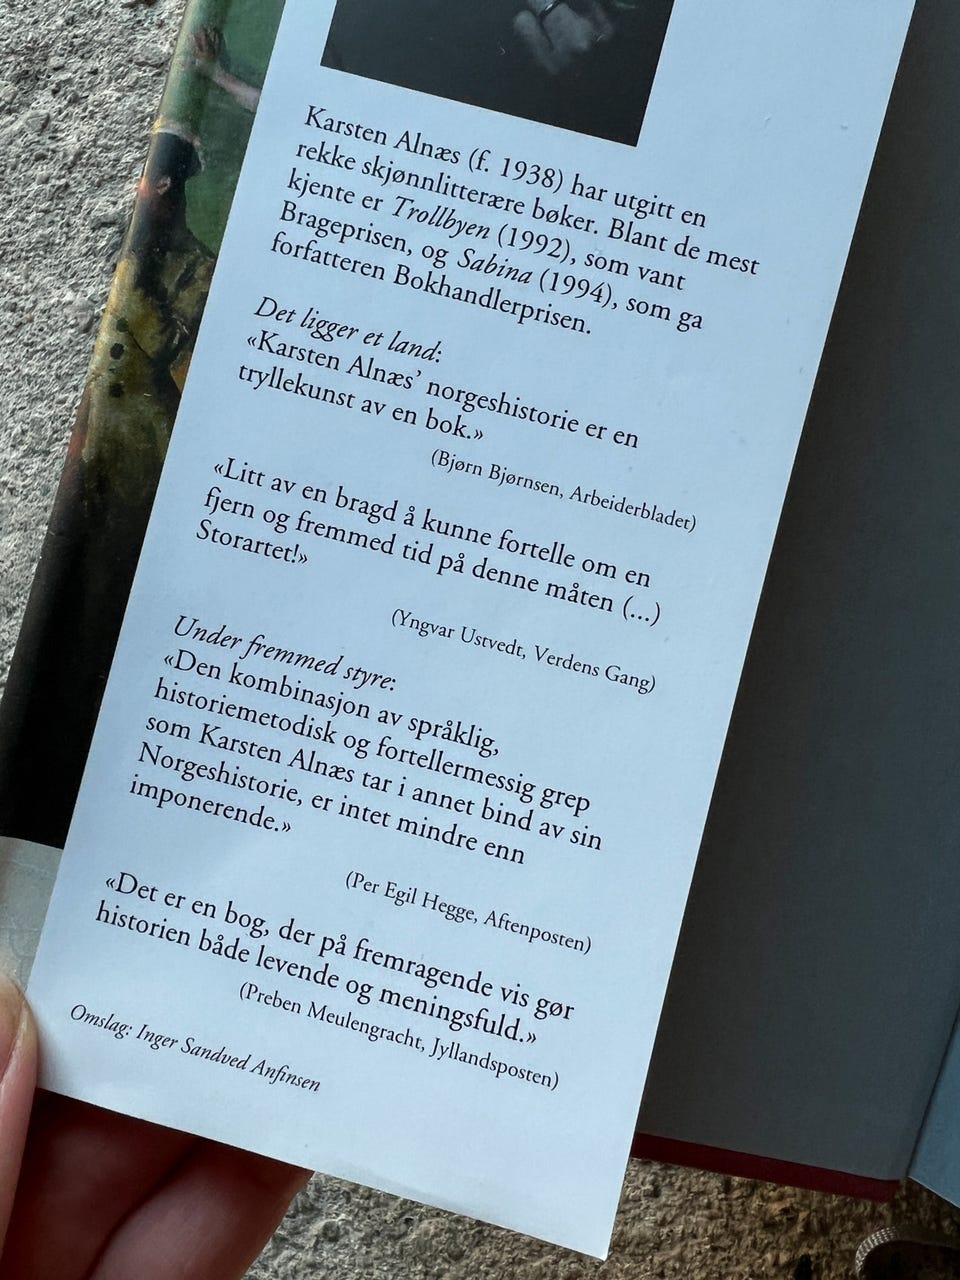 Karsten Alnæs (f. 1938) har utgitt en
rekke skjønnlitterære bøker. Blant de mest
kjente er Trollbyen (1992), som vant
Brageprisen, og Sabina (1994), som ga
forfatteren Bokhandlerprisen.
Det ligger et land:
«Karsten Alnæs’ norgeshistorie er en
tryllekunst av en bok.»
(Bjørn Bjørnsen, Arbeiderbladet)
«Litt av en bragd å kunne fortelle om en
fjern og fremmed tid på denne måten (...)
Storartet!»
(Yngvar Ustvedt, Verdens Gang)
Under fremmed styre:
«Den kombinasjon av språklig,
historiemetodisk og fortellermessig grep
som Karsten Alnæs tar i annet bind av sin
Norgeshistorie, er intet mindre enn
imponerende.»
(Per Egil Hegge, Aftenposten)
«Det er en bog, der på fremragende vis gør
historien både levende og meningsfuld.»
(Preben Meulengracht, Jyllandsposten)
Omslag: Inger Sandved Anfinsen